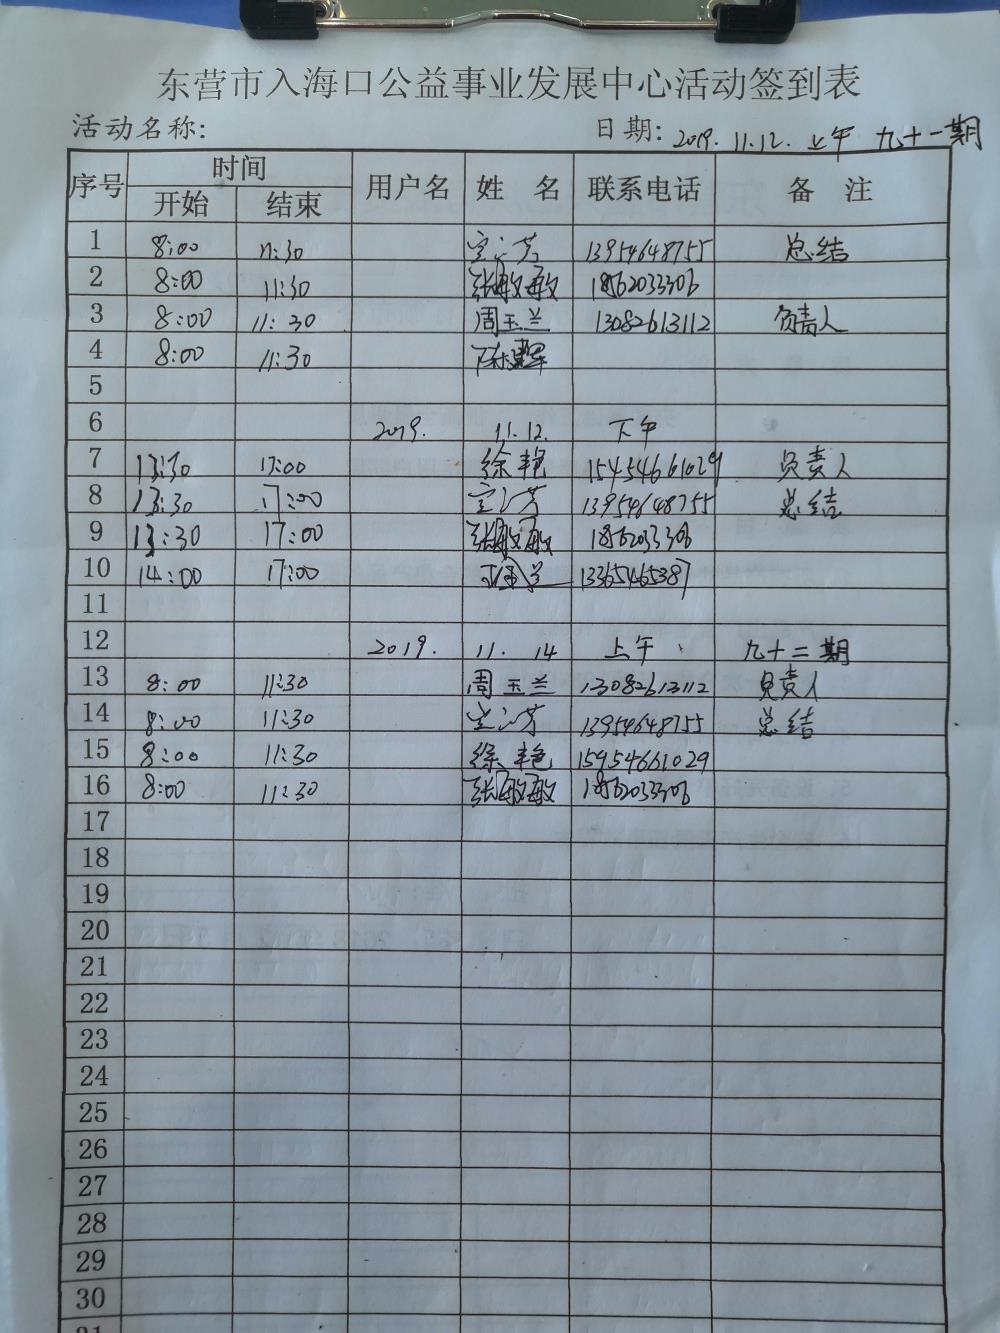 东营市入海口公益事业发展中心活动签到表
活动名称: 日期: 2019. 11.12. 上午 九十一期
序号 时间 用户名 姓 名 联系电话 备 注
开始 结束
1 8:00 11:30 13954648755 总结
2 8:00 11:30 张敏敏 18562033306
3 8:00 11:30 周玉兰 13082613112 负责人
4 8:00 11:30
5
6 2019. 11.12. 下午
7 13:30 17:00 徐艳 15954661029 负责人
8 13:30 17:00 13954648755 总结
9 13:30 17:00 张敏敏 18562033306
10 14:00 17:00 13365465387
11
12 2019. 11. 14 上午 九十二期
13 8:00 11:30 周玉兰 13082613112 负责人
14 8:00 11:30 13954648755 总结
15 8:00 11:30 徐艳 15954661029
16 8:00 11:30 张敏敏 18562033306
17
18
19
20
21
22
23
24
25
26
27
28
29
30
31